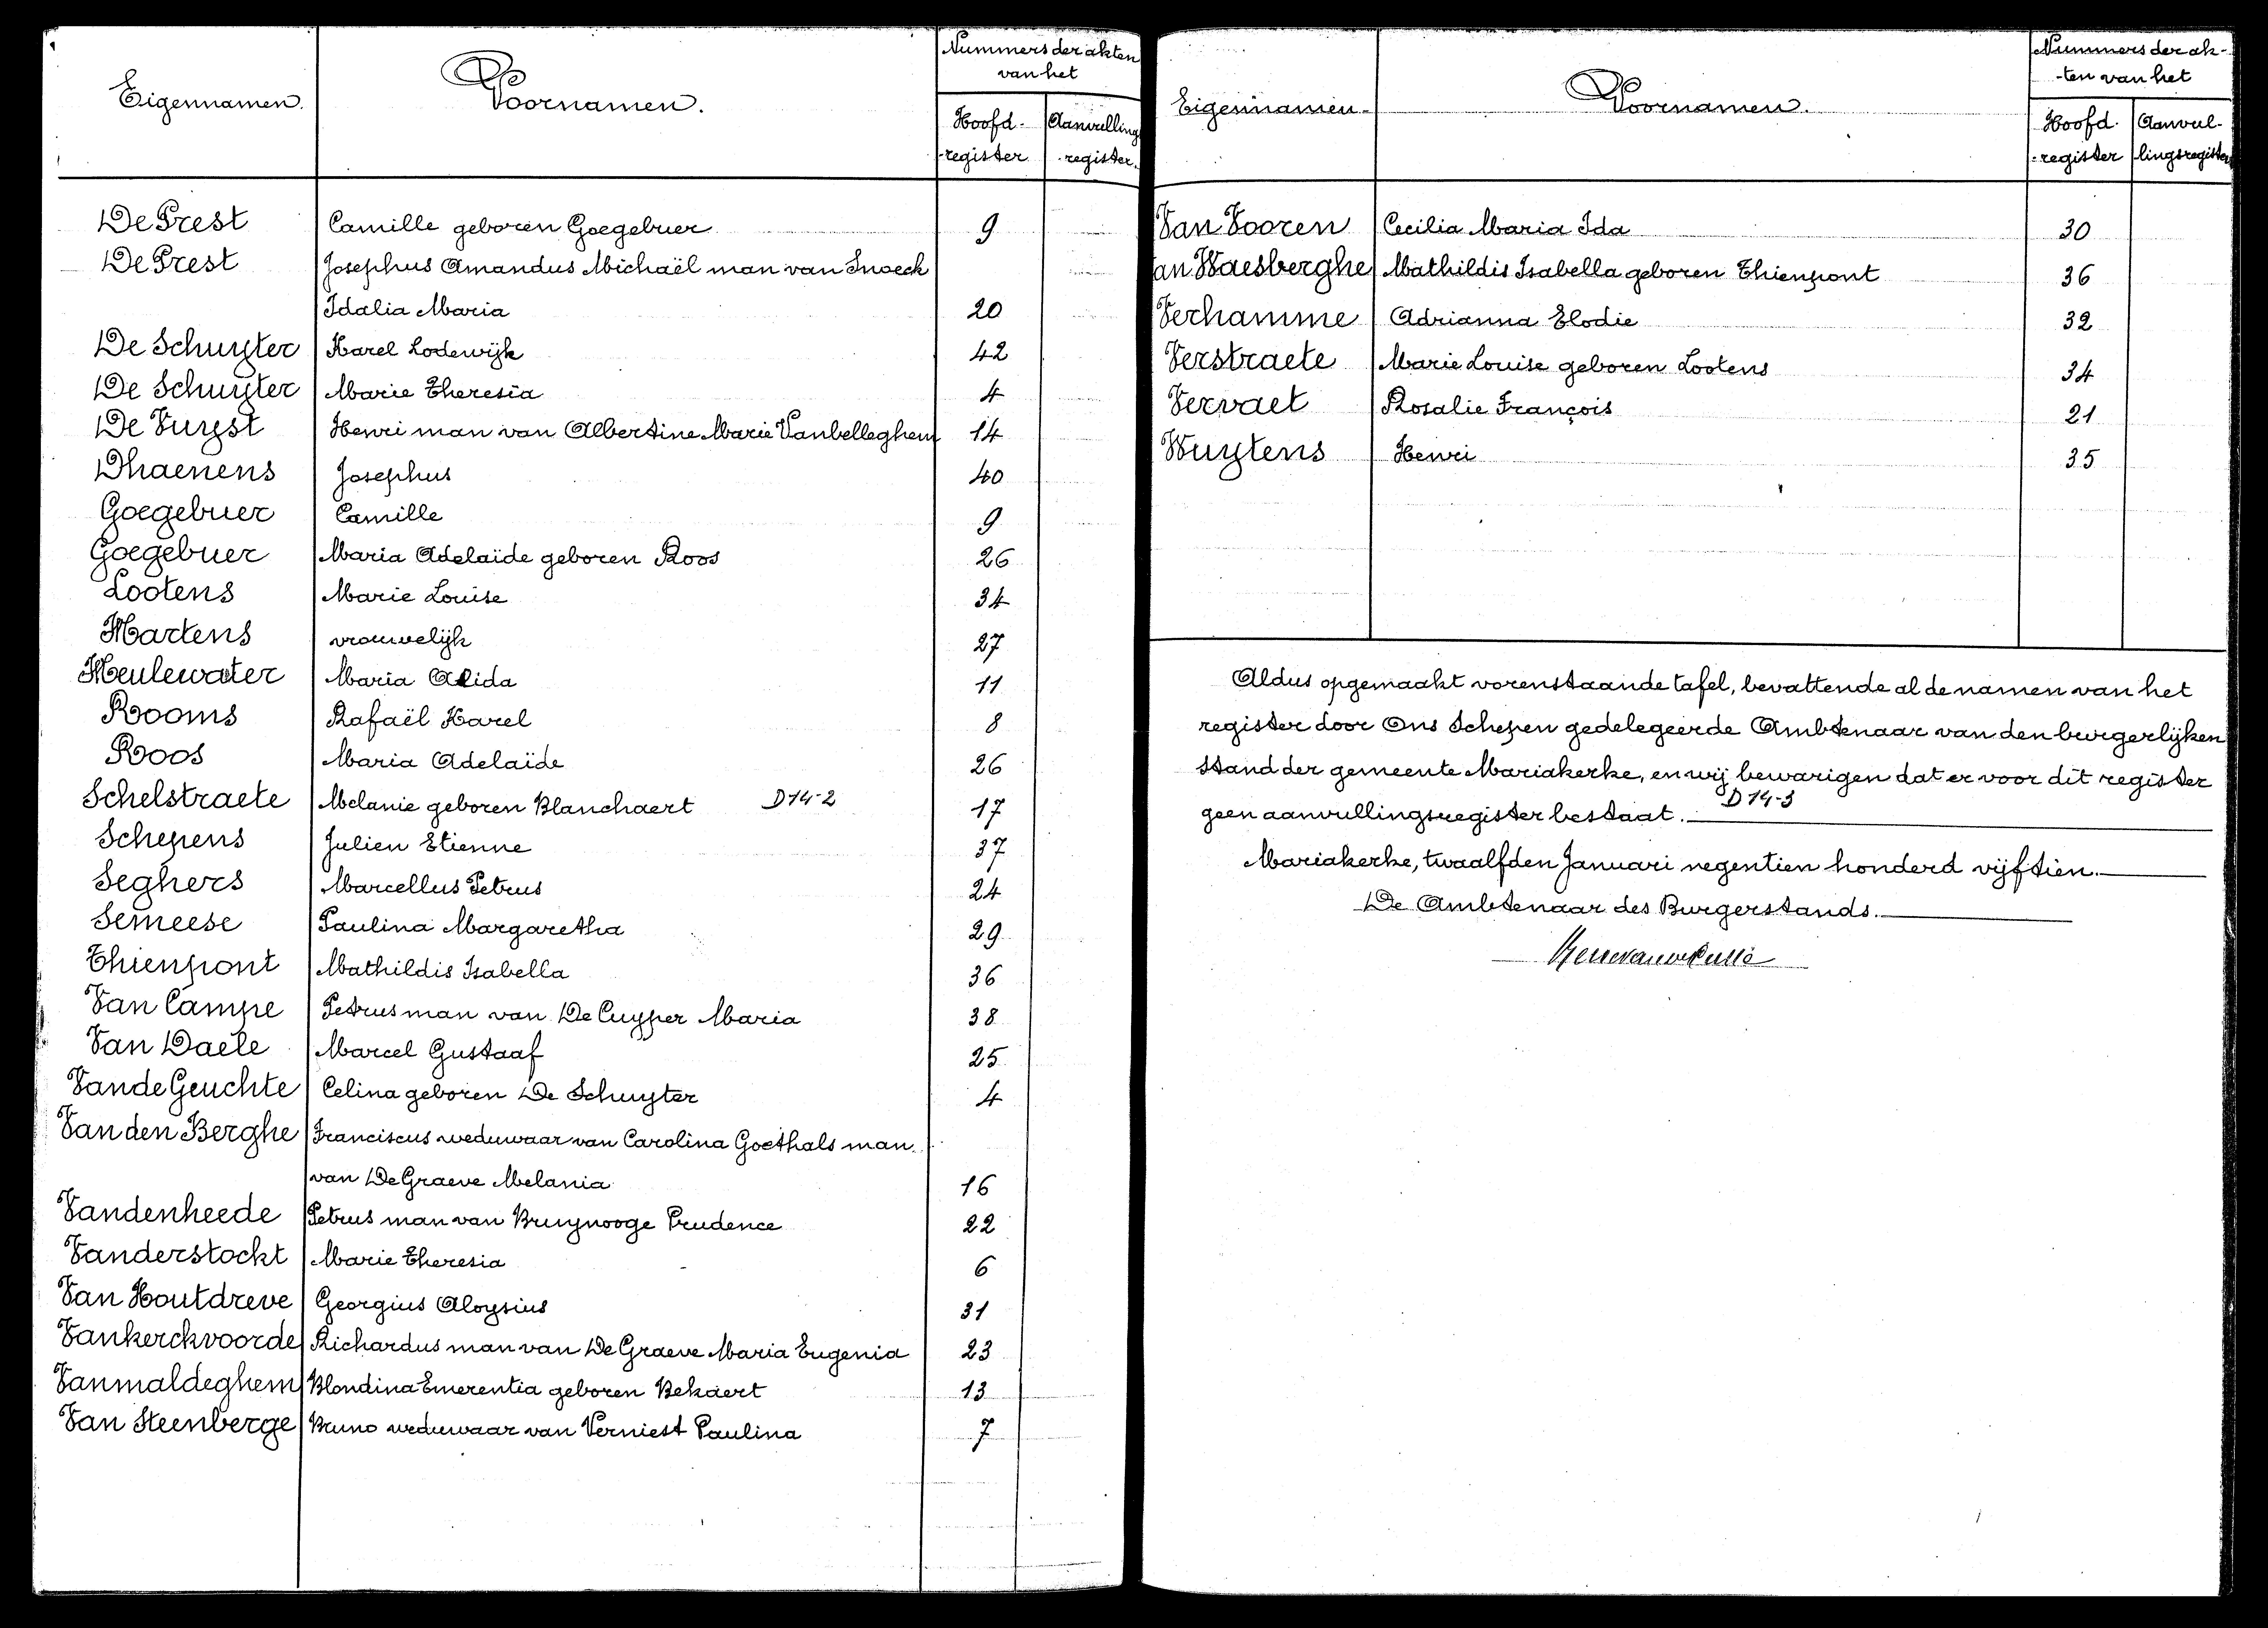 Eigennamen. Voornamen. Nummers der akten
van het
Hoofd- Aanvullings
-register -register.
De Prest Camille geboren Goegebuer 9
De Prest Josephus Amandus Michaël man van Snoeck
Idalia Maria 20
De Schuyter Karel Lodewijk 42
De Schuyter Marie Theresia 4
De Vuyst Henri man van Albertine Marie Vanbelleghem 14
Dhaenens Josephus 40
Goegebuer Camille 9
Goegebuer Maria Adelaïde geboren Roos 26
Lootens Marie Louise 34
Martens vrouwelijk 27
Meulewater Maria Alida 11
Rooms Rafaël Karel 8
Roos Maria Adelaïde 26
Schelstraete Melanie geboren Blanchaert D14-2 17
Schepens Julien Etienne 37
Seghers Marcellus Petrus 24
Semeese Paulina Margaretha 29
Thienpont Mathildis Isabella 36
Van Campe Petrus man van De Cuyper Maria 38
Van Daele Marcel Gustaaf 25
Van de Geuchte Celina geboren De Schuyter 4
Van den Berghe Franciscus weduwaar van Carolina Goethals man
van De Graeve Melania 16
Vandenheede Petrus man van Bruynooge Prudence 22
Vanderstockt Marie Theresia 6
Van Houtdreve Georgius Aloysius 31
Vankerckvoorde Richardus man van De Graeve Maria Eugenia 23
Vanmaldeghem Blondina Emerentia geboren Bekaert 13
Van Steenberge Bruno weduwaar van Verniest Paulina 7
Eigennamen- Voornamen. Nummers der ak-
-ten van het
Hoofd- Aanvul-
-register lingsregister
Van Vooren Cecilia Maria Ida 30
an Waesberghe Mathildis Isabella geboren Thienpont 36
Verhamme Adrianna Elodie 32
Verstraete Marie Louise geboren Lootens 34
Vervaet Rosalie François 21
Wuytens Henri 35
Aldus opgemaakt vorenstaande tafel, bevattende al de namen van het
register door Ons Schepen gedelegeerde Ambtenaar van den burgerlijken
stand der gemeente Mariakerke, en wij bewarigen dat er voor dit register
geen aanvullingsregister bestaat. D14-3
Mariakerke, twaalfden Januari negentien honderd vijftien.
De Ambtenaar des Burgerstands.